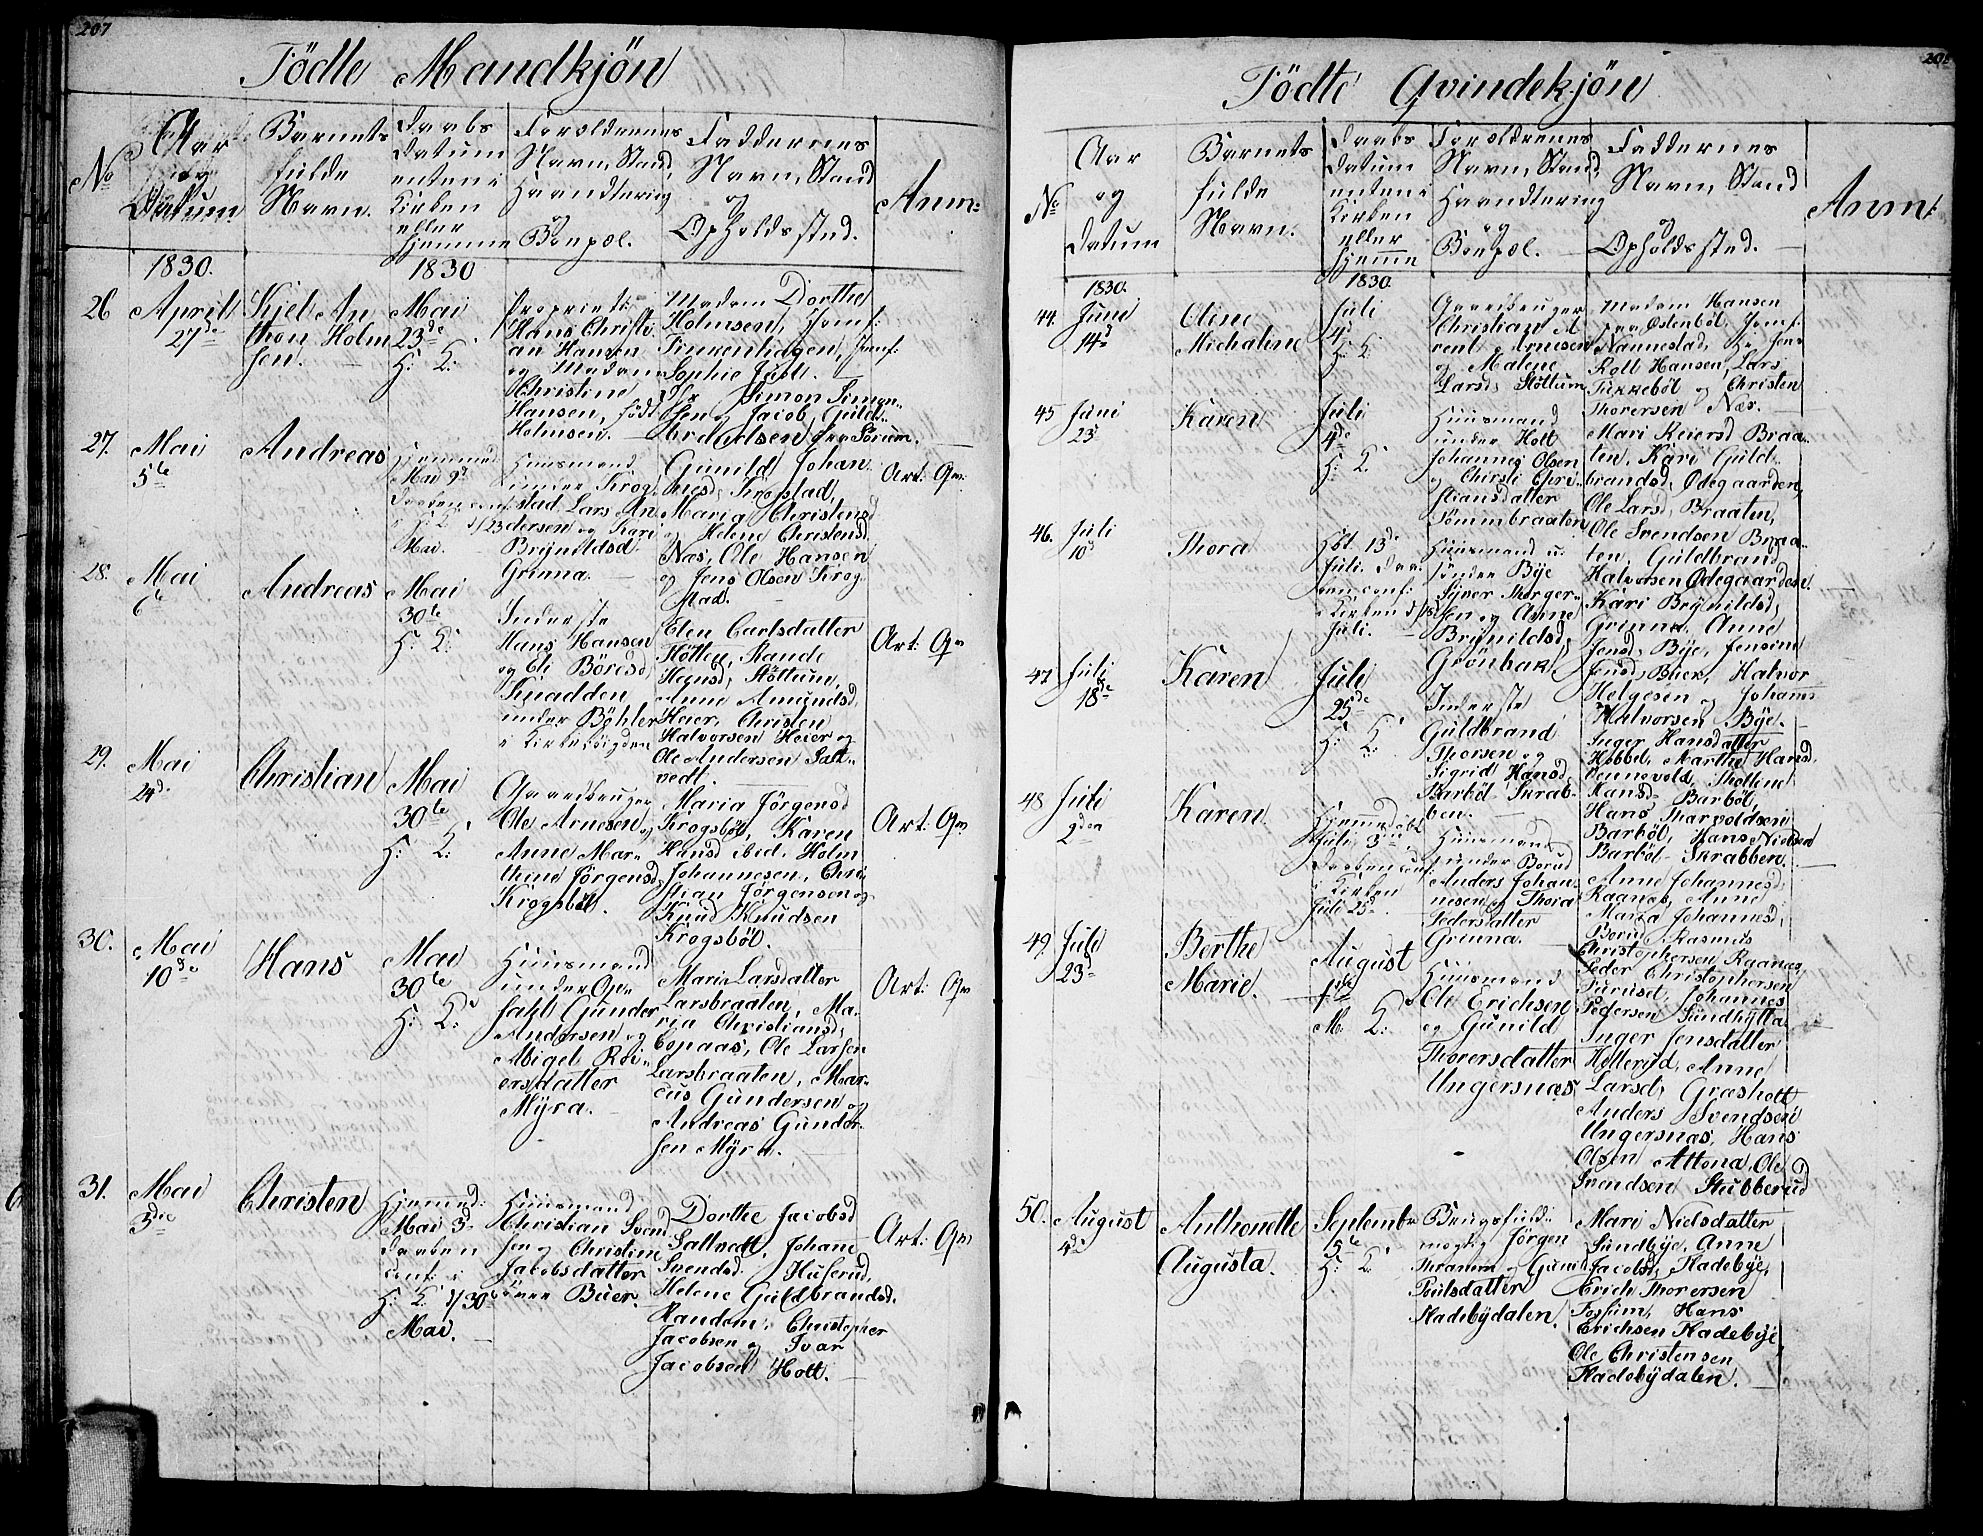 207
Födte Mandkjön
No
Aar
og
Datum
Barnets
fulde
Navn.
Daabs
Datum
enten i
Kirken
eller
Hjemme
Forældrenes
Navn, Stand,
Haandtering
og
Boepæl.
Faddernes
Navn, Stand
og
Opholdssted.
Anm:
1830.
1830
26
April
27de
Kjel An
thon Holm
sen.
Mai
23de
H: K:
Propriet:
Hans Christi
an Hansen
og Madam
Christine
Hansen, född
Holmsen.
Madam Dorthe
Holmsen, Jomf:
Finkenhagen, Jomf.
Sophie Juel.
Hr Simon Simon-
sen og Jacob Guld-
brandsen fra Sörum.
27.
Mai
5te
Andreas
Hjemmed:
Mai 9de
Daaben conf:
i H: K: d/23
Mai.
Huusmand
under Krog-
stad Lars An
dersen og Kari
Brynildsd
Grinna.
Gunild Johan
nesd, Krogstad,
Maria Christensd
og Helene Christensd
Næs, Ole Hansen
og Jens Olsen Krog
stad.
Art: Qv:
28.
Mai
6te
Andreas
Mai
30te
H: K:
Inderste
Hans Hansen
og Eli Böresd,
Knadden
under Böhler
i Kirkeböigden
Elen Carlsdatter
Hötten, Rande
Hansd, Stöttum,
Anne Amundsd,
Heier, Christen
Halvorsen Heier og
Ole Andersen Salt-
vedt.
Art: Qv
29.
Mai
24de
Christian
Mai
30te
H: K:
Gaardbruger
Ole Arnesen og
Anne Mar-
thine Jörgensd,
Krogsböl.
Maria Jörgensd
Krogsböl, Karen
Hansd ibid, Holm
Johannesen, Chri
stian Jörgensen og
Knud Knudsen
Krogsböl.
Art: Qv
30.
Mai
10de
Hans
Mai
30te
H: K:
Huusmand
under Ope-
sahl Gunder
Andersen og
Abigel Rei-
ersdatter
Myra.
Maria Larsdatter
Larsbraaten, Ma-
ria Christiansd,
Copaas, Ole Larsen
Larsbraaten, Mar-
cus Gundersen og
Andreas Gunder-
sen Myra.
Art: Qv
31.
Mai
3die
Christen
Hjemmed:
Mai 3d
Daaben
Conf: i
H: K: d/30te
Mai.
Huusmand
Christian Svend
sen og Christine
Jacobsdatter
Buer.
Dorthe Jacobsd
Saltvedt, Johane
Svendsd. Huserud,
Helene Guldbrandsd.
Randem, Christopher
Jacobsen og Ivar
Jacobsen Holt.
Art: Qv
208
Födte Qvindekjön
No
Aar
og
Datum
Barnets
fulde
Navn.
Daabs
Datum
enten i
Kirken
eller
Hjemme
Forældrenes
Navn, Stand,
Haandtering
og
Boepæl.
Faddernes
Navn, Stand
og
Opholdssted.
Anm:
1830.
1830.
44.
Juni
14d
Oline
Michaline
Juli
4d
H: K:
Gaardbruger
Christian A
rent Arnesen
og Malene
Larsd, Stöttum
Madam Hansen
fra Östenböl, Jomf:
Nannestad, Hr Jens
Roll Hansen, Lars
Tukkeböl og Christen
Thorersen Næs.
45
Juni
23d
Karen
Juli
4de
H: K:
Huusmand
under Holt
Johannes Olsen
og Chirsti Chri
stiansdatter
Tömmbraaten
Mari Reiersd Braa-
ten, Kari Guld-
brandsd, Ödegaarden,
Ole Larsd, Braaten,
Ole Svendsen Braa-
ten, Guldbrand
Halvorsen Ödegaarden.
46.
Juli
10d
Thora
Hbt. 13de
Juli. Daa-
ben conf:
i Kirken d/18
Juli.
Huusmand u.
söndre Bye
Syver Thorger-
sen og Anne
Brynildsd,
Grönbak
Kari Brynildsd,
Grinna, Anne
Jensd, Bye, Jensine
Jensd, Buer, Halvor
Helgesen og Johannes
Halvorsen Bye.
47
Juli
18de
Karen
Juli
25de
H: K:
Inderste
Guldbrand
Thorsen og
Sigrid Hansd,
Barböl Skrab-
ben.
Inger Hansdatter
Hobbel, Marthe Hansd,
Vennevold, Thollene
Hansd Barböl,
Hans Tharvoldsen
Barböl, Hans Nielsen
Barböl-Skrabben.
48
Juli
2den
Karen
Hjemmedöbt
Juli 3die
Daaben conf:
i Kirken
Juli 25de
Huusmand
under Borud
Anders Johan-
nesen og Thora
Pedersdatter
Grinna.
Anne Johannesd,
Raanes, Anne
Maria Johannesd,
Borud, Rasmus
Christophersen Raanes,
Peder Christophersen
Furuset, Johannes
Pedersen Sundhytta
49.
Juli
23d
Berthe
Marie.
August
1ste
M: K:
Huusmand
Ole Erichsen
og Gunild
Thorersdatter
Ungersnæs
Inger Jensdatter
Hellerud, Anne
Larsd, Græsholt
Anders Svendsen
Ungersnæs, Hans
Olsen Altona, Ole
Svendsen Stubberud
50.
August
4de
Anthonette
Augusta.
Septembr
5te
H: K:
Bergsfuld-
mægtig Jörgen
Thramm og Gunil
Poulsdatter
Hadebydalen.
Mari Nielsdatter
Sundbye, Anne
Jacobsd, Hadebye,
Erich Thorersen
Fossum, Hans
Erichsen Hadebye
Ole Christensen
Hadebydalen.